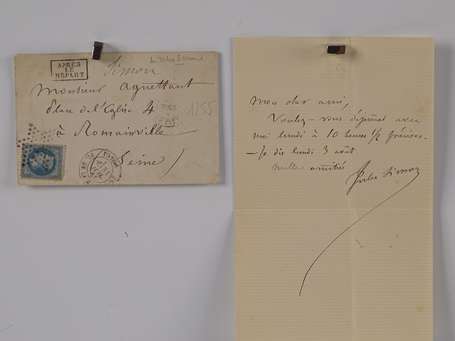 APRÈS
LE
DÉPART
Simon
Jules Simon
Monsieur Agnettant
Place de l'Eglise 4
1255
à Romainville
Seine
Mon cher ami,
Voulez-vous déjeuner avec
moi lundi à 10 heures 1/2 précises.
- Je dis lundi 3 août.
mille amitiés
Jules Simon